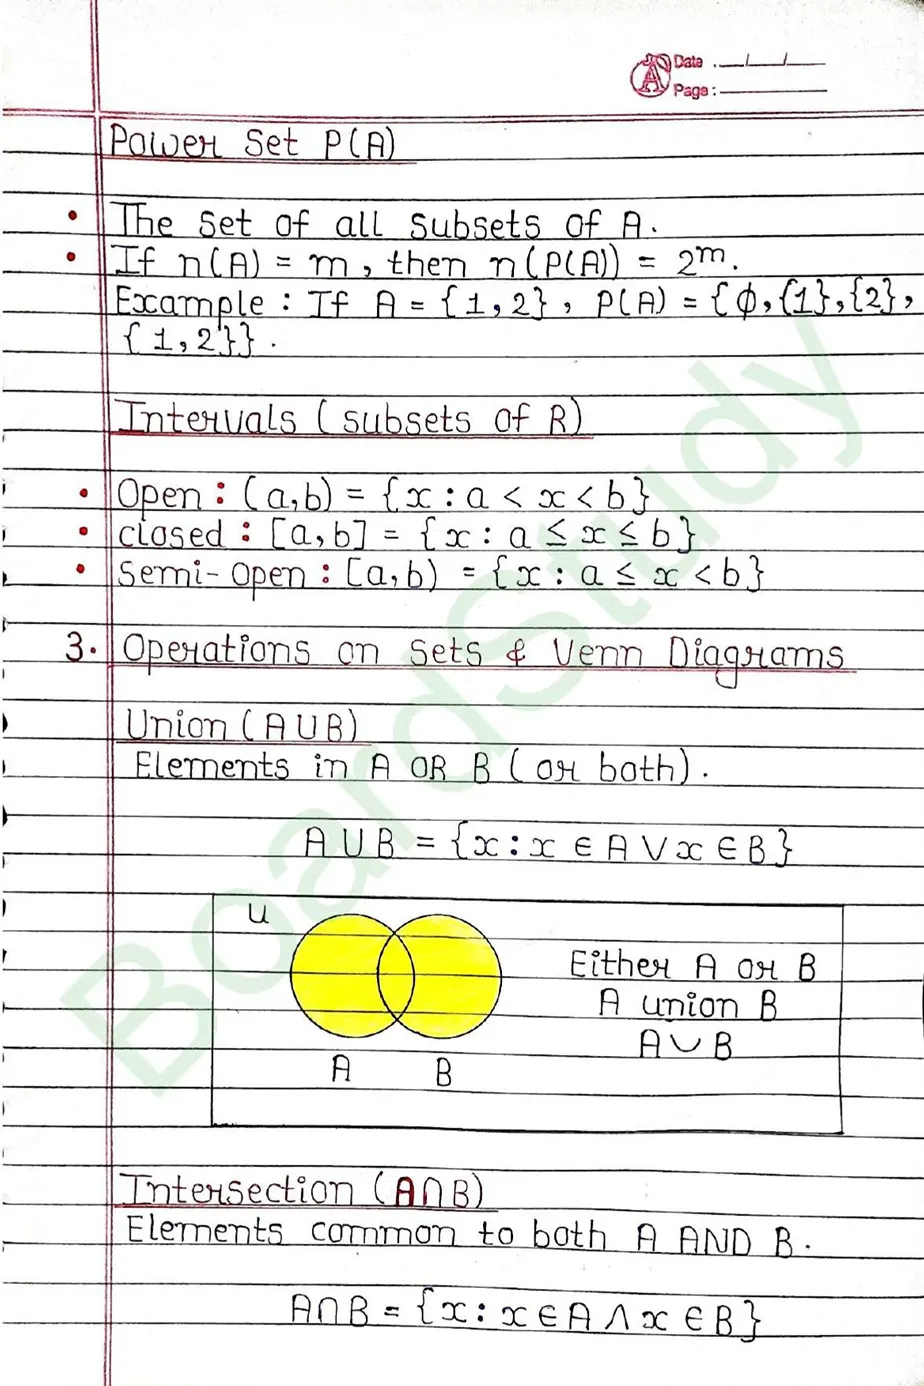 Date : __/__/__
Page :
Power Set P(A)
• The set of all subsets of A.
• If n(A) = m, then n(P(A)) = 2ᵐ.
Example : If A = {1,2}, P(A) = {ϕ,{1},{2},
{1,2}}.
Intervals (subsets of R)
• Open : (a,b) = {x : a < x < b}
• closed : [a,b] = {x : a ≤ x ≤ b}
• semi-open : [a,b) = {x : a ≤ x < b}
3. Operations on sets & Venn Diagrams
Union (A∪B)
Elements in A OR B (or both).
A∪B = {x : x ∈ A ∨ x ∈ B}
U
Either A or B
A union B
A∪B
A B
Intersection (A∩B)
Elements common to both A AND B.
A∩B = {x : x ∈ A ∧ x ∈ B}
BoardStudy